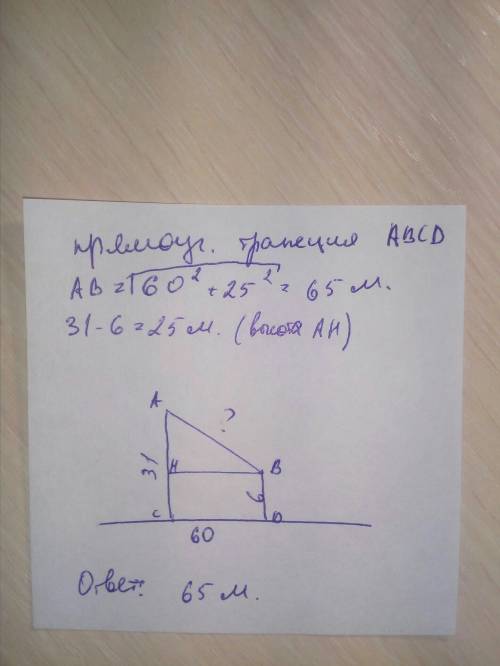 прямоуг. трапеция ABCD
AB = √60² + 25² = 65 м.
31 - 6 = 25 м. (высота AH)
A
?
31
H
B
6
C
D
60
Ответ: 65 м.